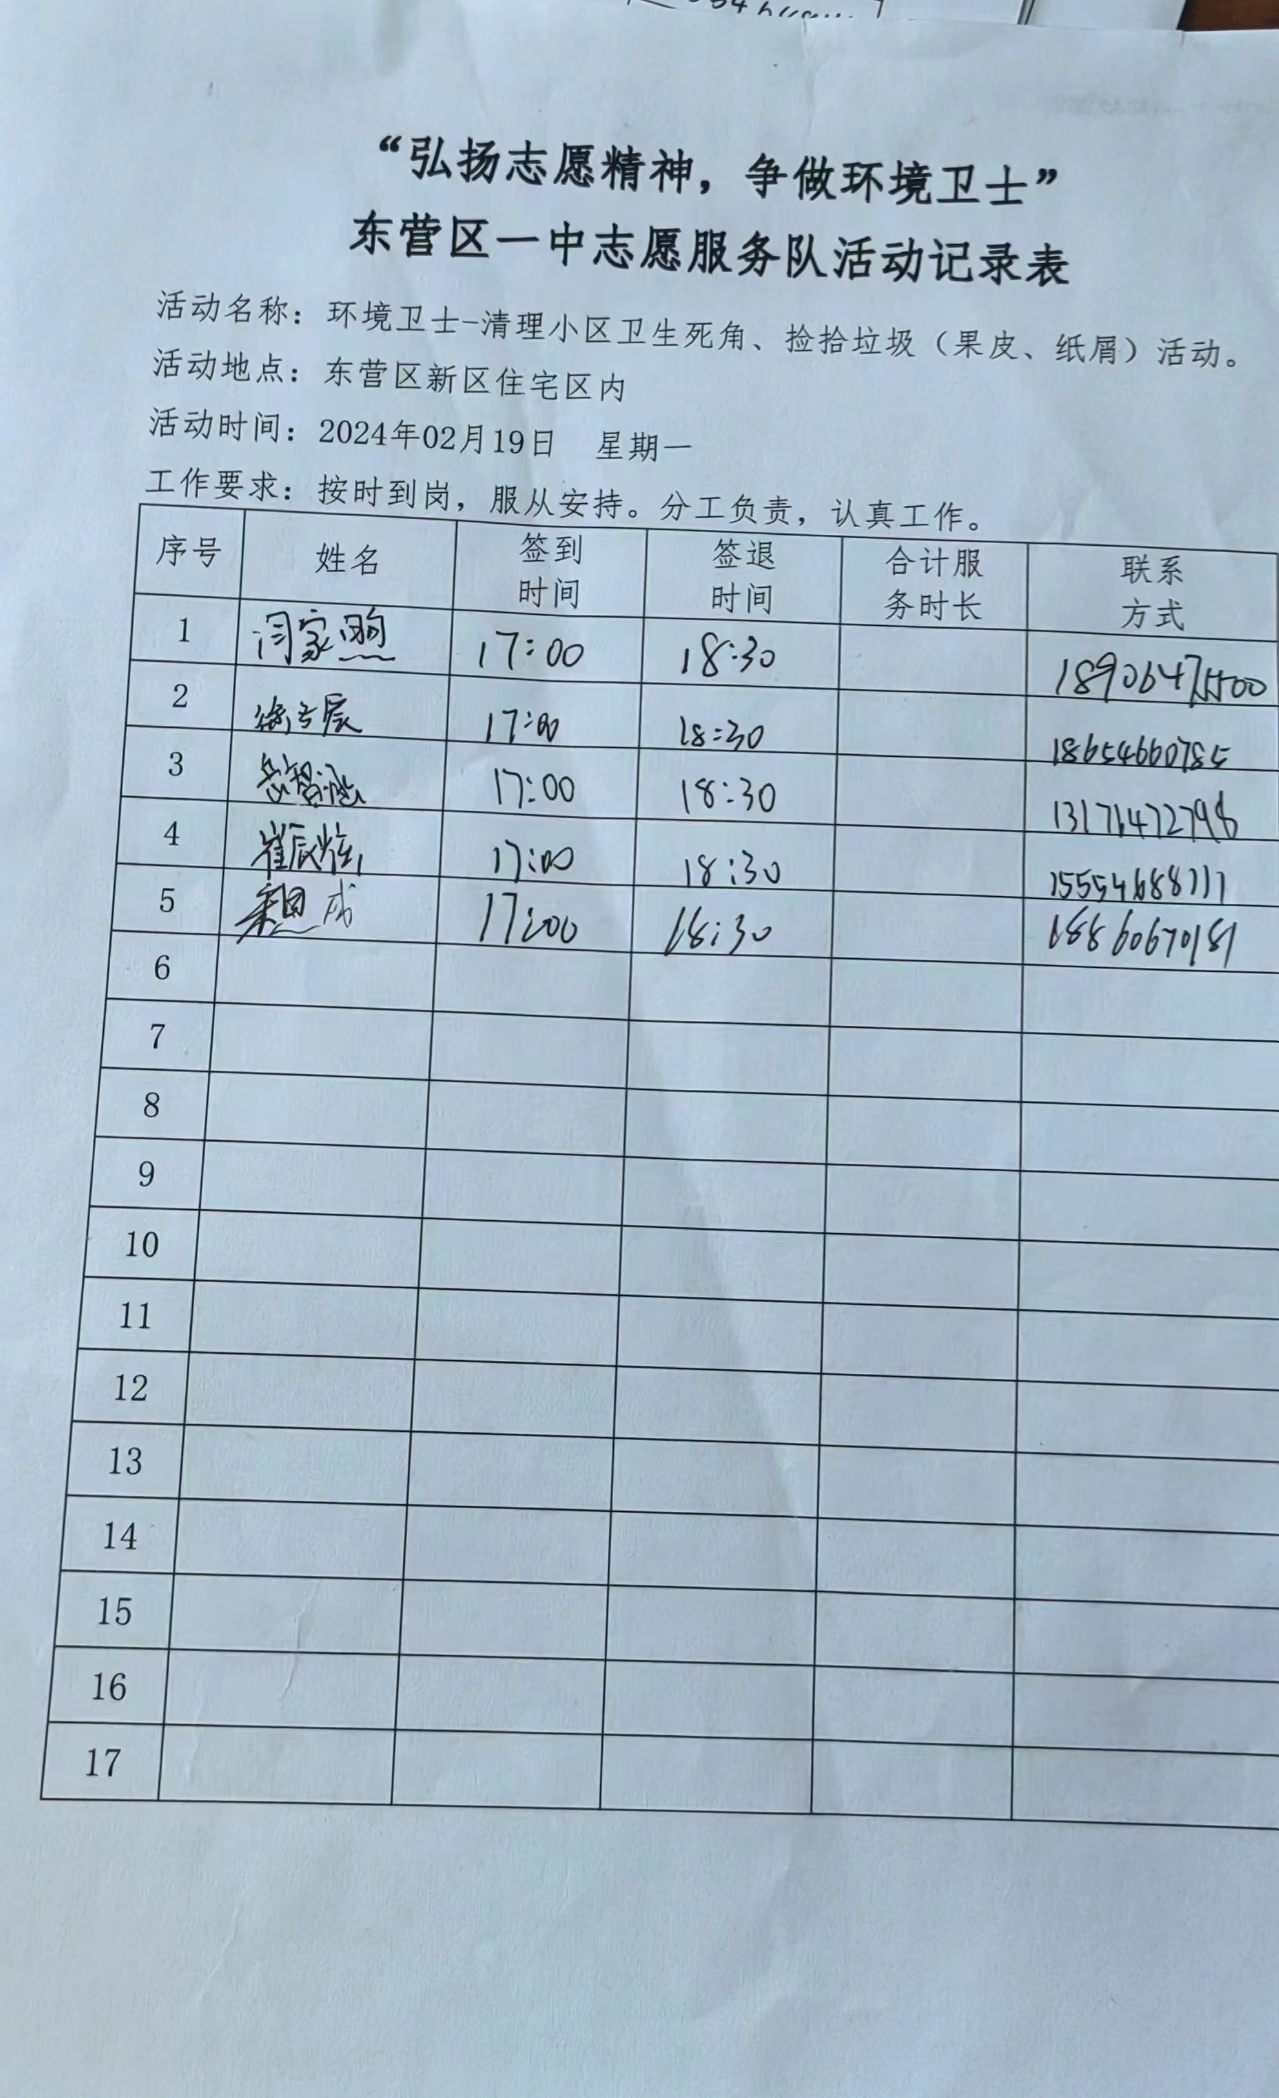 “弘扬志愿精神，争做环境卫士”
东营区一中志愿服务队活动记录表
活动名称：环境卫士-清理小区卫生死角、捡拾垃圾（果皮、纸屑）活动。
活动地点：东营区新区住宅区内
活动时间：2024年02月19日 星期一
工作要求：按时到岗，服从安持。分工负责，认真工作。
序号 姓名 签到时间 签退时间 合计服务时长 联系方式
1 闫家煦 17:00 18:30 18906475500
2 17:00 18:30 18654660785
3 17:00 18:30 13176472798
4 崔辰 17:00 18:30 15554688777
5 17:00 18:30 18860670181
6
7
8
9
10
11
12
13
14
15
16
17